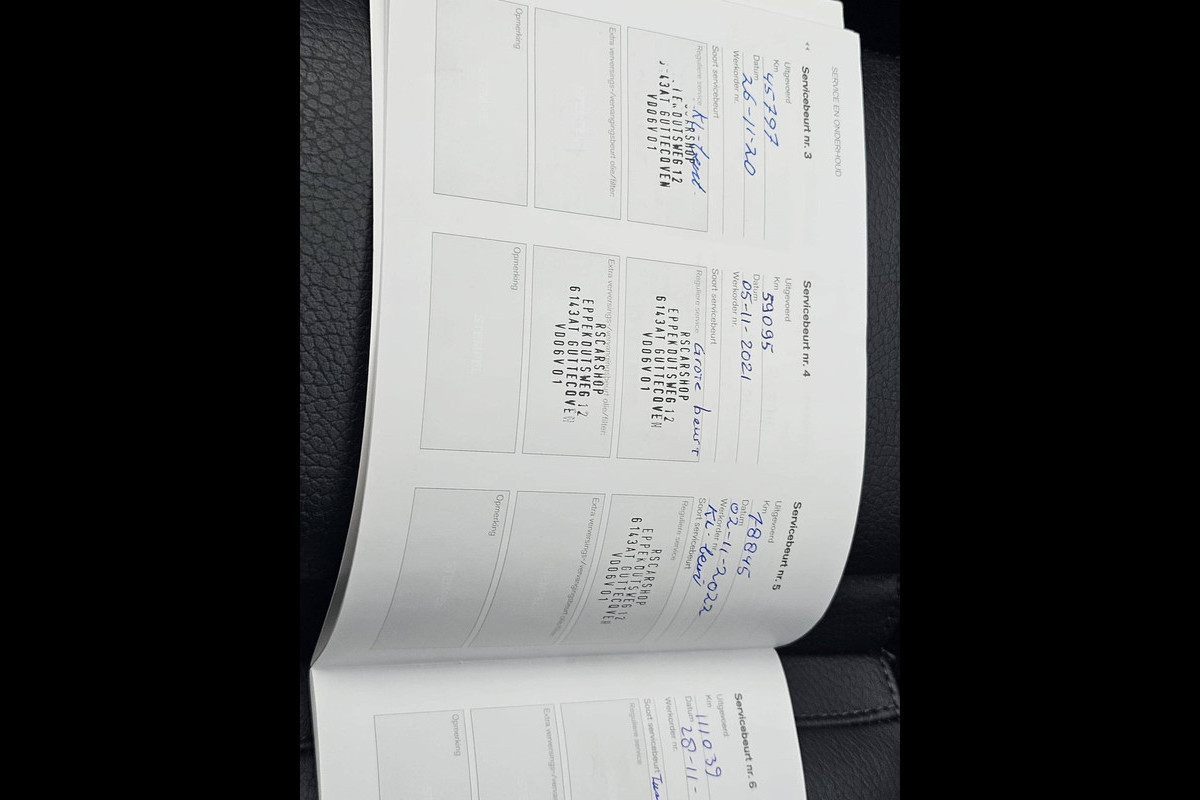 SERVICE EN ONDERHOUD
Servicebeurt nr. 3
Uitgevoerd
Km 45797
Datum 26-11-20
Werkorder nr.
Soort servicebeurt
Reguliere service Kl.
6143AT GUTTECOVEN
VD06V01
Extra verversings-/vervangingsbeurt olie/filter:
Opmerking
Servicebeurt nr. 4
Uitgevoerd
Km 59095
Datum 05-11-2021
Werkorder nr.
Soort servicebeurt
Reguliere service Grote beurt
RSCARSHOP
EPPEKOUTSWEG 12
6143AT GUTTECOVEN
VD06V01
Extra verversings-/vervangingsbeurt olie/filter:
RSCARSHOP
EPPEKOUTSWEG 12
6143AT GUTTECOVEN
VD06V01
Opmerking
Servicebeurt nr. 5
Uitgevoerd
Km 78845
Datum 02-11-2022
Werkorder nr.
Soort servicebeurt Kl. beurt
Reguliere service
RSCARSHOP
EPPEKOUTSWEG 12
6143AT GUTTECOVEN
VD06V01
Extra verversings-/vervangingsbeurt olie/filter:
Opmerking
Servicebeurt nr. 6
Uitgevoerd
Km 111039
Datum 28-11-
Werkorder nr.
Soort servicebeurt
Reguliere service
Extra verversings-/vervan
Opmerking